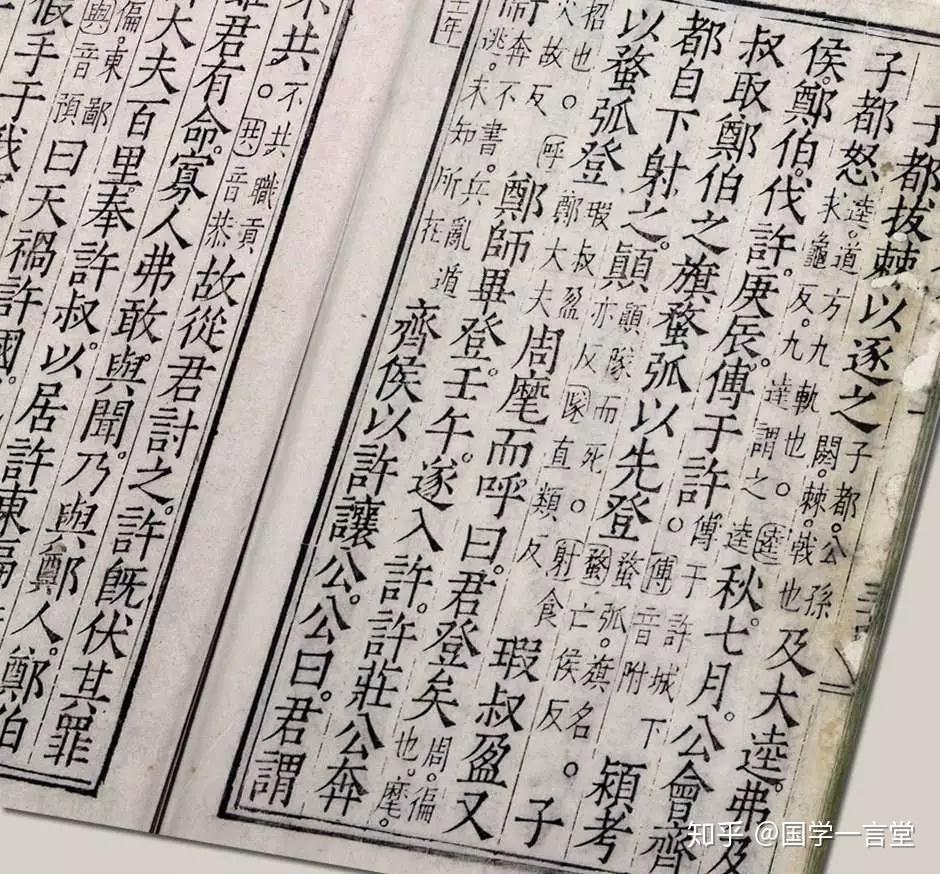 子都拔棘以逐之子都公孫閼棘戟也及大逵弗及
子都怒逵道方九軌也逵求龜反九達謂之逵秋七月公會齊
侯鄭伯伐許庚辰傅于許傅于許城下傅音附潁考
叔取鄭伯之旗蝥弧以先登蝥弧旗名蝥亡侯反子
都自下射之顛顛隊而死射食亦反隊直類反瑕叔盈又
以蝥弧登瑕叔盈鄭大夫周麾而呼曰君登矣周徧也麾
招也呼火故反鄭師畢登壬午遂入許許莊公奔
奔不書兵亂遁逃未知所在齊侯以許讓公公曰君謂
不共不共職貢共音恭故從君討之許旣伏其罪
雖君有命寡人弗敢與聞乃與鄭人鄭伯
大夫百里奉許叔以居許東偏
偏東鄙與音預曰天禍許國
假手于我寡